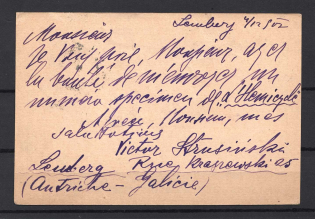 Lemberg 4/12 902
Monsieur
Je Vous prie, Monsieur, ayez
la bonté de m'envoyer un
numero specimen de "L'Hemicycle"
Agréez, Monsieur, mes
salutations
Victor Strusiński
Lemberg Rue Kraszewski 25
(Autriche - Galicie)